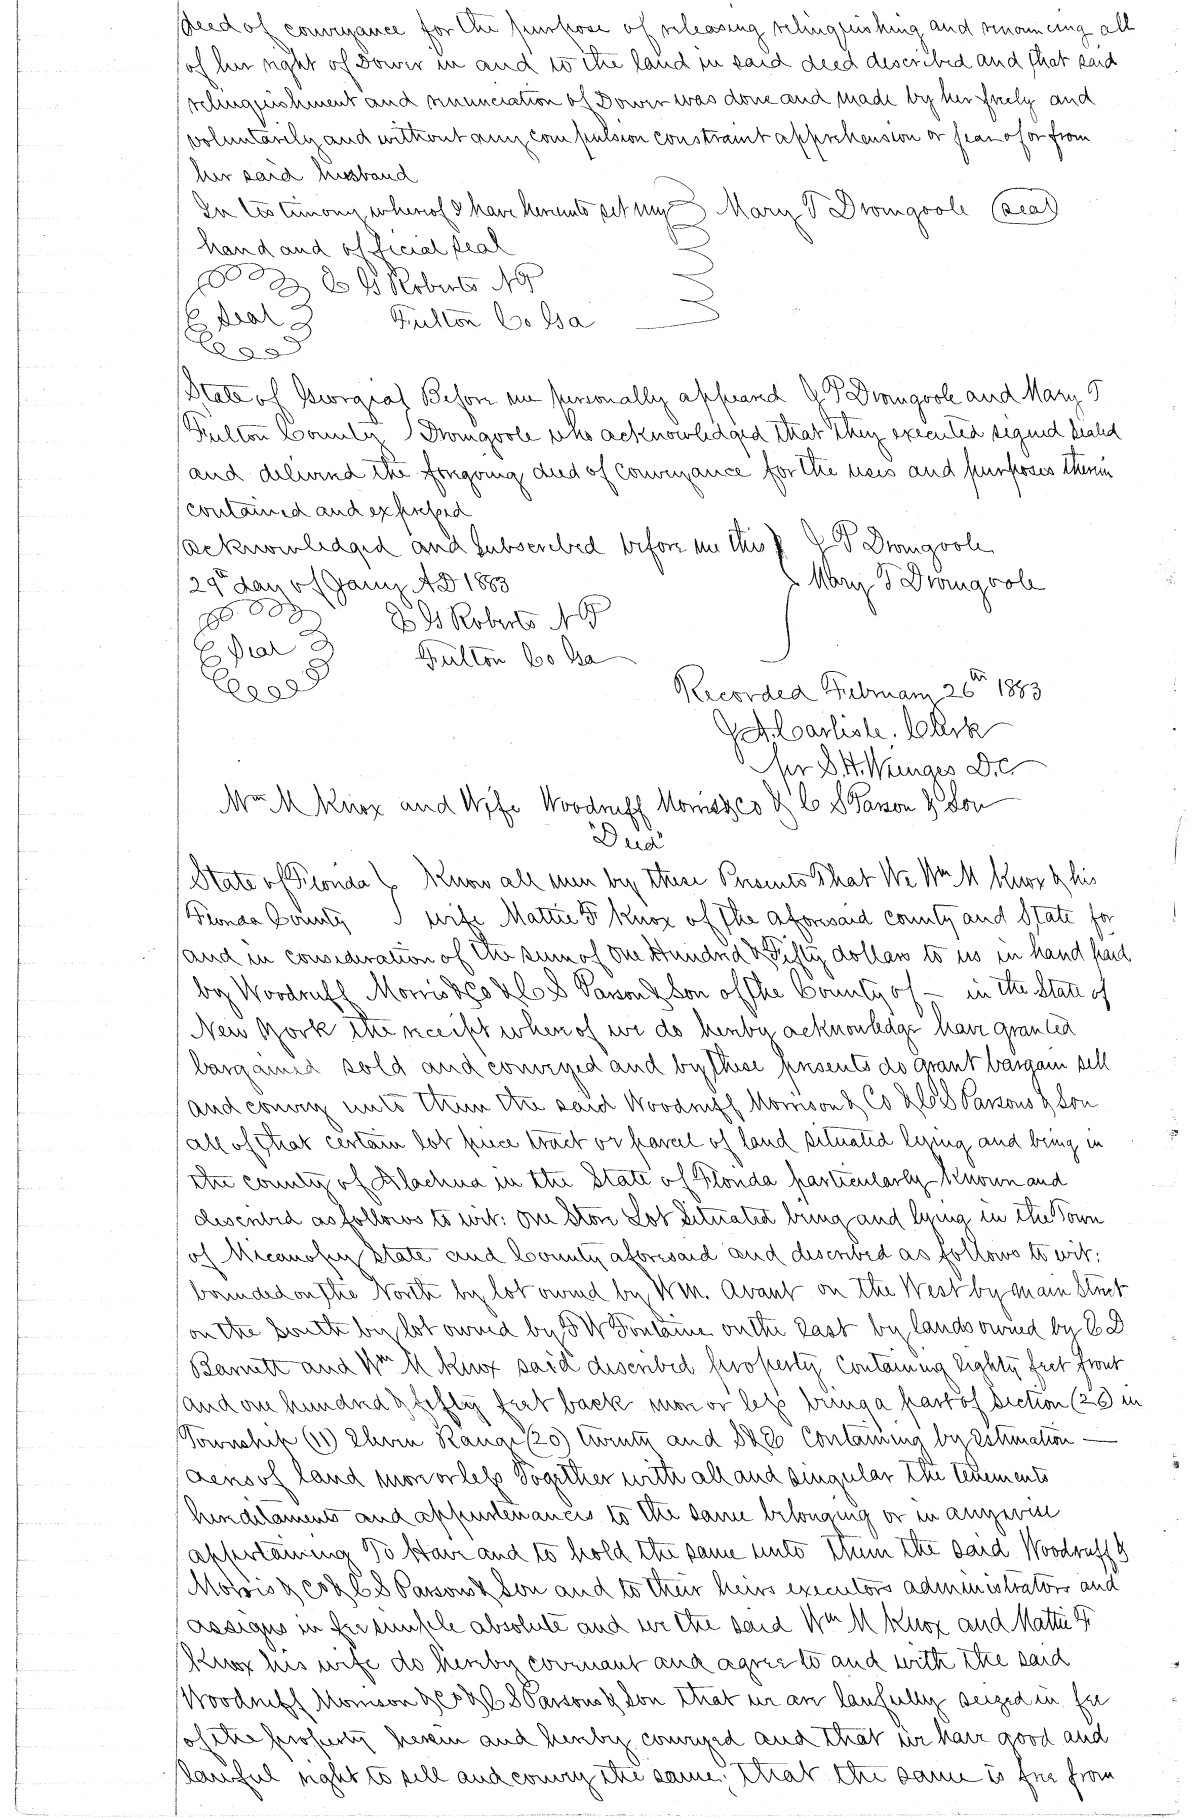 deed of conveyance for the purpose of releasing relinquishing and renouncing all
of her right of Dower in and to the land in said deed described and that said
relinquishment and renunciation of Dower was done and made by her freely and
voluntarily and without any compulsion constraint apprehension or fear of or from
her said husband
In testimony whereof I have hereunto set my Mary T Dromgoole (Seal)
hand and official seal
G Roberts NP
Seal Fulton Co Ga
State of Georgia Before me personally appeared J P Dromgoole and Mary T
Fulton County Dromgoole who acknowledged that they executed signed sealed
and delivered the foregoing deed of conveyance for the uses and purposes therein
contained and expressed
acknowledged and subscribed before me this J P Dromgoole
29th day of Jany AD 1883 Mary T Dromgoole
G Roberts NP
Seal Fulton Co Ga
Recorded February 26th 1883
J.A. Carlisle. Clerk
per S.H. Wienges D.C.
Wm M Knox and Wife Woodruff Morris & Co & C S Parson & Son
"Deed"
State of Florida Know all men by these Presents That We Wm M Knox & his
Florida County wife Mattie F Knox of the aforesaid county and State for
and in consideration of the sum of One Hundred & Fifty dollars to us in hand paid
by Woodruff Morris & Co & C S Parson & Son of the County of — in the State of
New York the receipt whereof we do hereby acknowledge have granted
bargained sold and conveyed and by these presents do grant bargain sell
and convey unto them the said Woodruff Morrison & Co & C S Parsons & Son
all of that certain lot piece tract or parcel of land situated lying and being in
the county of Alachua in the State of Florida particularly known and
described as follows to wit: One Store Lot Situated being and lying in the Town
of Micanopy State and County aforesaid and described as follows to wit:
bounded on the North by lot owned by Wm. Avant on the West by main Street
on the South by lot owned by F W Fontaine on the East by lands owned by E D
Barnett and Wm M Knox said described property containing Eighty feet front
and one hundred & fifty feet back more or less being a part of Section (26) in
Township (11) Eleven Range (20) twenty and S & E Containing by Estimation —
acres of land more or less Together with all and singular the tenements
hereditaments and appurtenances to the same belonging or in anywise
appertaining To Have and to hold the same unto them the said Woodruff &
Morris & Co & C S Parsons & Son and to their heirs executors administrators and
assigns in fee simple absolute and we the said Wm M Knox and Mattie F
Knox his wife do hereby covenant and agree to and with the said
Woodruff Morrison & Co & C S Parsons & Son that we are lawfully seized in fee
of the property herein and hereby conveyed and that we have good and
lawful right to sell and convey the same; that the same is free from